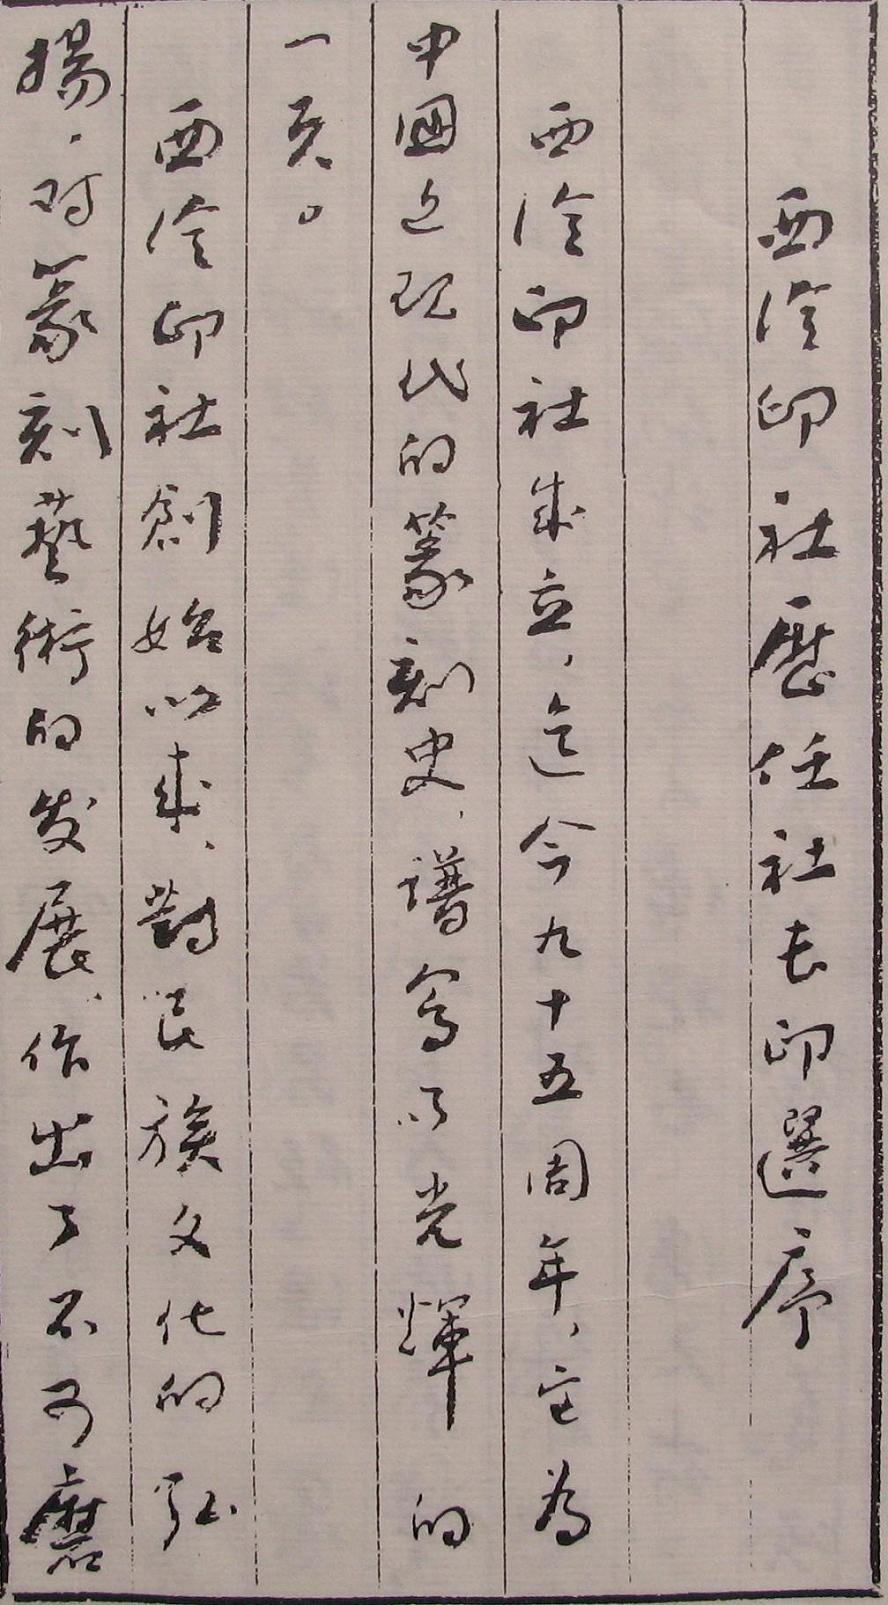 西泠印社歷任社长印選序
西泠印社成立，迄今九十五周年，它为
中國近现代的篆刻史，譜寫了光輝的
一页。
西泠印社創始以来、對民族文化的弘
揚，对篆刻藝術的发展，作出了不可磨